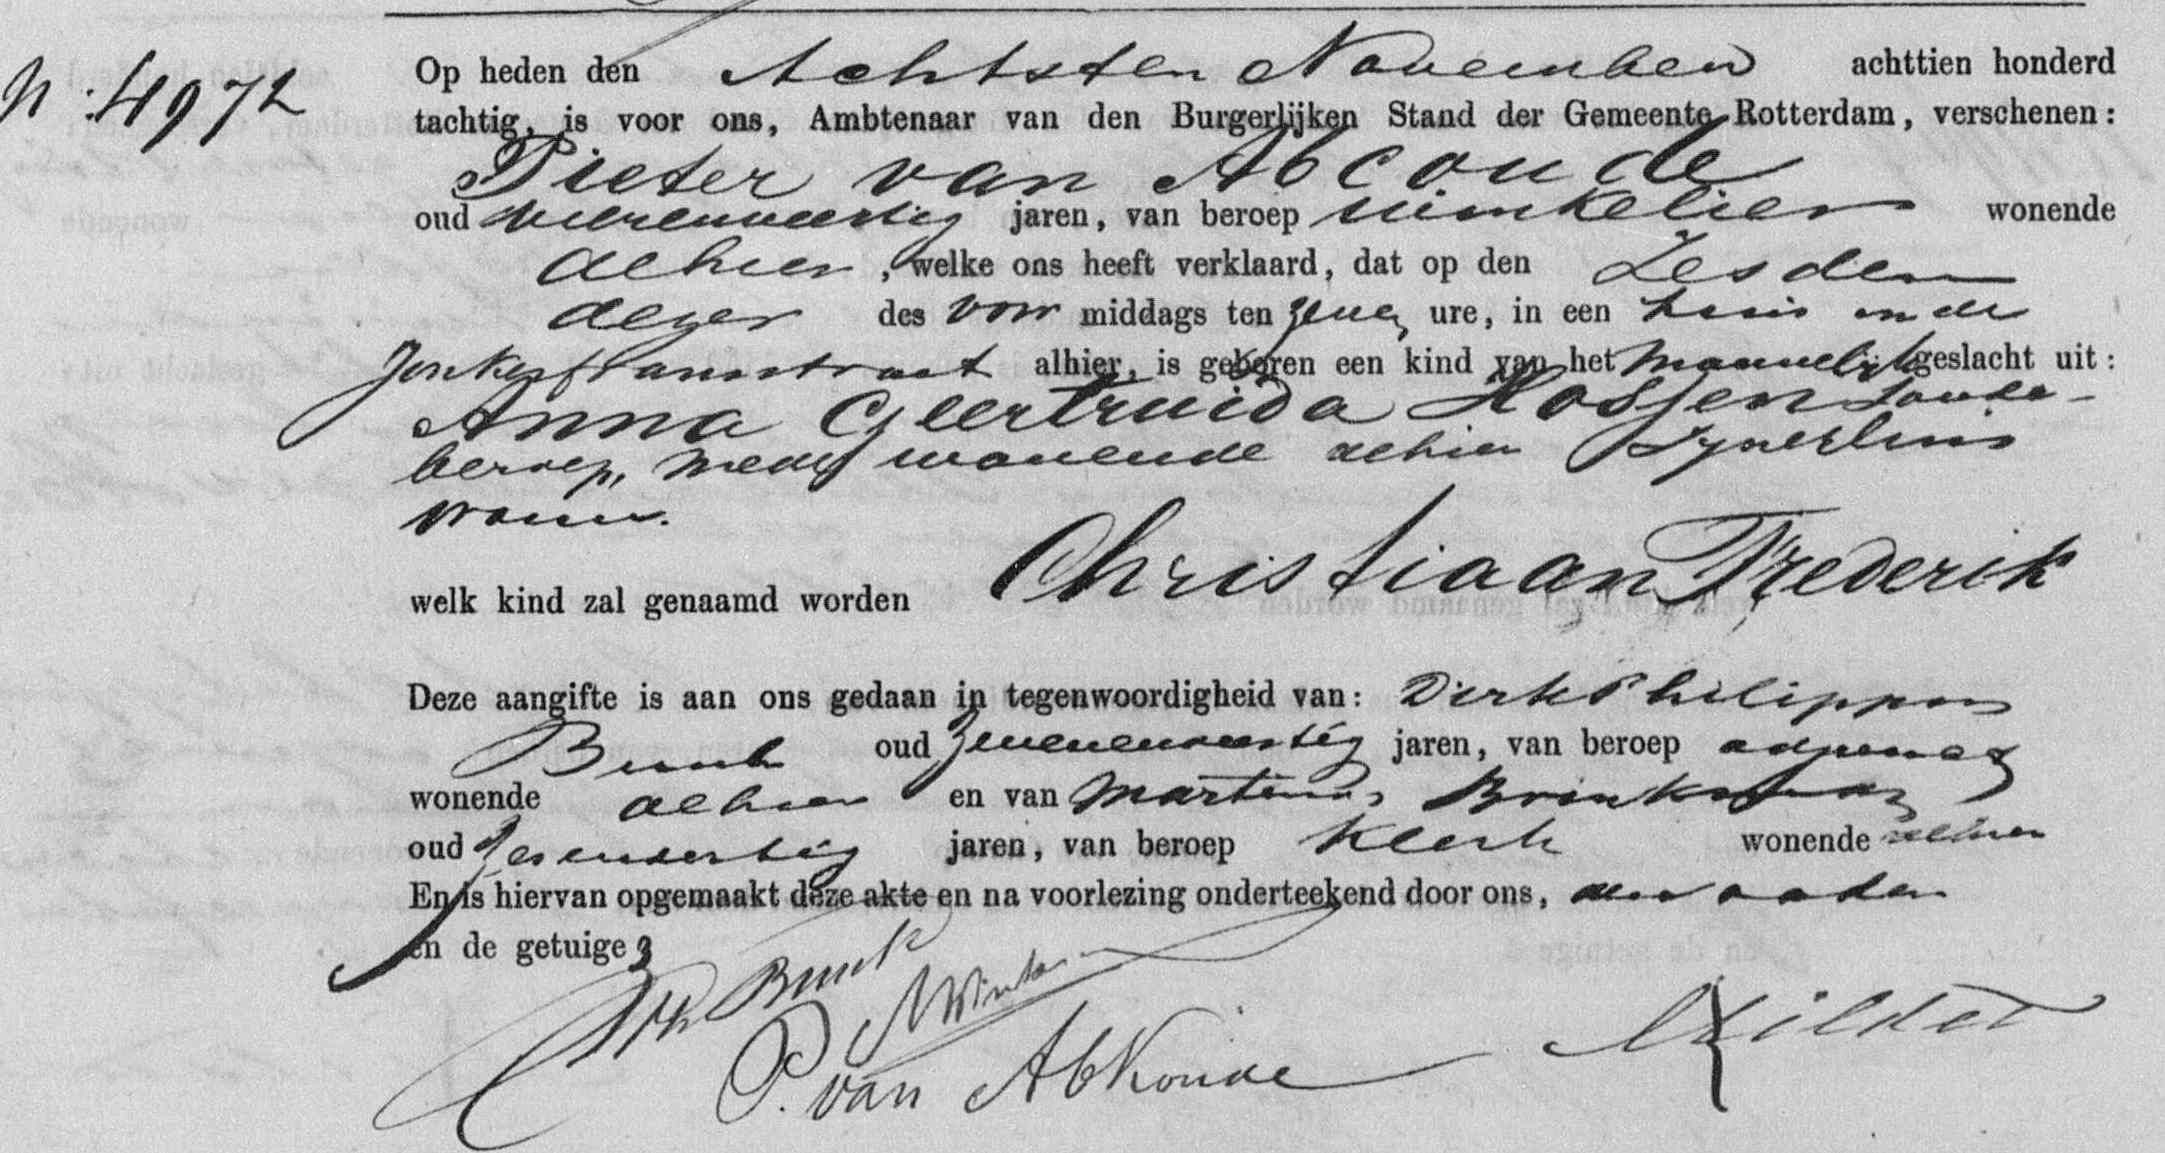 N: 4972
Op heden den Achtsten November achttien honderd
tachtig, is voor ons, Ambtenaar van den Burgerlijken Stand der Gemeente Rotterdam, verschenen:
Pieter van Abcoude
oud vierenveertig jaren, van beroep winkelier wonende
alhier, welke ons heeft verklaard, dat op den Zesden
dezer des voor middags ten zeven ure, in een huis in de
Jonkerfransstraat alhier, is geboren een kind van het mannelijk geslacht uit:
Anna Geertruida Hossen zonder
beroep, mede wonende alhier zijne huis
vrouw.
welk kind zal genaamd worden Christiaan Frederik
Deze aangifte is aan ons gedaan in tegenwoordigheid van: Dirk Philippus
Bunk oud zevenenveertig jaren, van beroep
wonende alhier en van Martinus
oud zesendertig jaren, van beroep klerk wonende alhier
En is hiervan opgemaakt deze akte en na voorlezing onderteekend door ons, den vader
en de getuigen
Bunk
P. van Abkoude